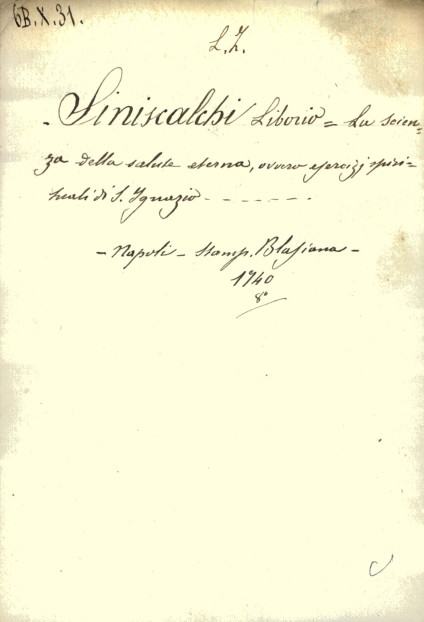 6B.X.31.
L.Z.
- Siniscalchi Liborio = La scien=
za della salute eterna, ovvero esercizj spiri=
tuali di S. Ignazio - - - - - - -
- Napoli - Stamp. Blasiana -
1740
8°